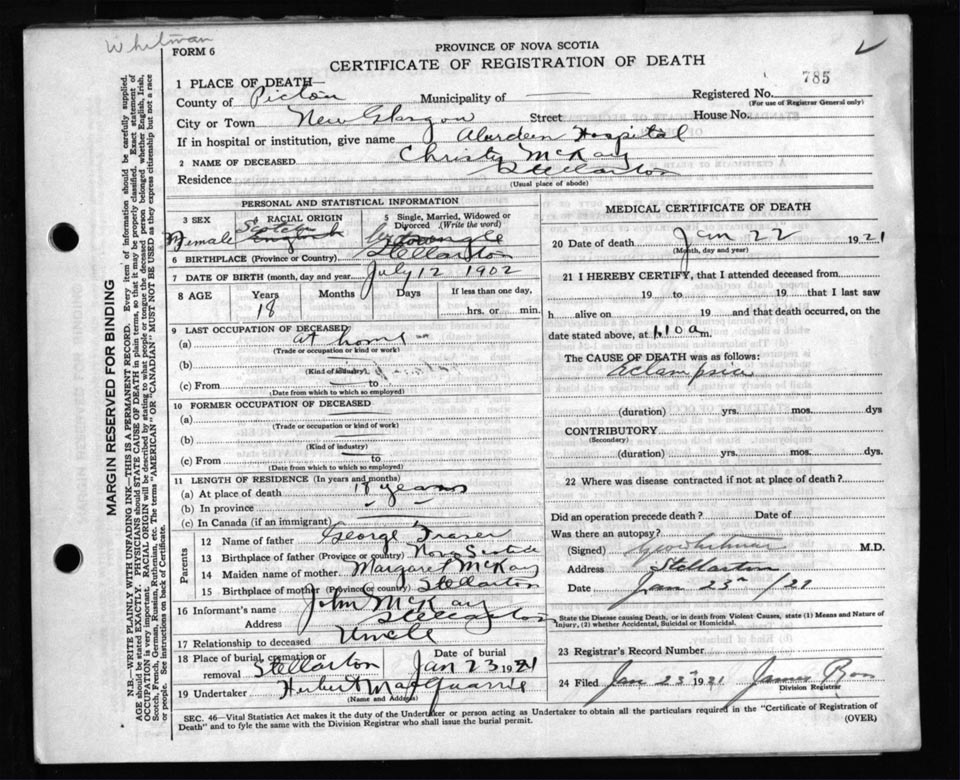 Whitman
FORM 6
PROVINCE OF NOVA SCOTIA
CERTIFICATE OF REGISTRATION OF DEATH
785
1 PLACE OF DEATH—
County of Pictou Municipality of — Registered No.
(For use of Registrar General only)
City or Town New Glasgow Street House No.
If in hospital or institution, give name Aberdeen Hospital
2 NAME OF DECEASED Christy McKay
Residence Stellarton
(Usual place of abode)
PERSONAL AND STATISTICAL INFORMATION
3 SEX 4 RACIAL ORIGIN 5 Single, Married, Widowed or Divorced (Write the word)
Female Scotch Single
6 BIRTHPLACE (Province or Country) Stellarton
7 DATE OF BIRTH (month, day and year) July 12 1902
8 AGE Years Months Days If less than one day,
18 hrs. or min.
9 LAST OCCUPATION OF DECEASED
(a) at home
(Trade or occupation or kind or work)
(b)
(Kind of industry)
(c) From to
(Date from which to which so employed)
10 FORMER OCCUPATION OF DECEASED
(a)
(Trade or occupation or kind of work)
(b)
(Kind of industry)
(c) From to
(Date from which to which so employed)
11 LENGTH OF RESIDENCE (In years and months)
(a) At place of death 18 years
(b) In province
(c) In Canada (if an immigrant)
Parents
12 Name of father George Fraser
13 Birthplace of father (Province or country) Nova Scotia
14 Maiden name of mother Margaret McKay
15 Birthplace of mother (Province or country) Stellarton
16 Informant's name John McKay
Address Stellarton
17 Relationship to deceased Uncle
18 Place of burial, cremation or removal Stellarton Date of burial Jan 23 1921
19 Undertaker Herbert MacQuarrie
(Name and Address)
MEDICAL CERTIFICATE OF DEATH
20 Date of death Jan 22 1921
(Month, day and year)
21 I HEREBY CERTIFY, that I attended deceased from
19 to 19 that I last saw
h alive on 19 and that death occurred, on
date stated above, at 1.10 a m.
The CAUSE OF DEATH was as follows:
Eclampsia
(duration) yrs. mos. dys
CONTRIBUTORY
(Secondary)
(duration) yrs. mos. dys.
22 Where was disease contracted if not at place of death?
Did an operation precede death? Date of
Was there an autopsy?
(Signed) Whitman M.D.
Address Stellarton
Date Jan 23rd /21
State the Disease causing Death, or in death from Violent Causes, state (1) Means and Nature of
Injury, (2) whether Accidental, Suicidal or Homicidal.
23 Registrar's Record Number
24 Filed Jan 23rd 1921 James Ross
Division Registrar
SEC. 46—Vital Statistics Act makes it the duty of the Undertaker or person acting as Undertaker to obtain all the particulars required in the "Certificate of Registration of
Death" and to fyle the same with the Division Registrar who shall issue the burial permit.
(OVER)
MARGIN RESERVED FOR BINDING
N.B.—WRITE PLAINLY WITH UNFADING INK—THIS IS A PERMANENT RECORD. Every item of information should be carefully supplied.
AGE should be stated EXACTLY. PHYSICIANS should STATE CAUSE OF DEATH in plain terms, so that it may be properly classified. Exact statement of
OCCUPATION is very important. RACIAL ORIGIN will be described by stating to what people or tongue the deceased person belonged whether English, Irish,
Scotch, French, German, Russian, Ruthenian, etc. The terms "AMERICAN" OR "CANADIAN" MUST NOT BE USED as they express citizenship but not a race
or people. See instructions on back of Certificate.